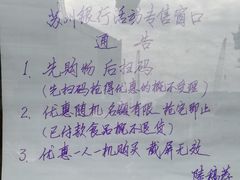 苏州银行活动专售窗口
通 告
1. 先购物 后扫码
(先扫码抢得优惠的概不受理)
2. 优惠随机 名额有限 抢完即止
(已付款食品概不退货)
3. 优惠一人一机购买 截屏无效